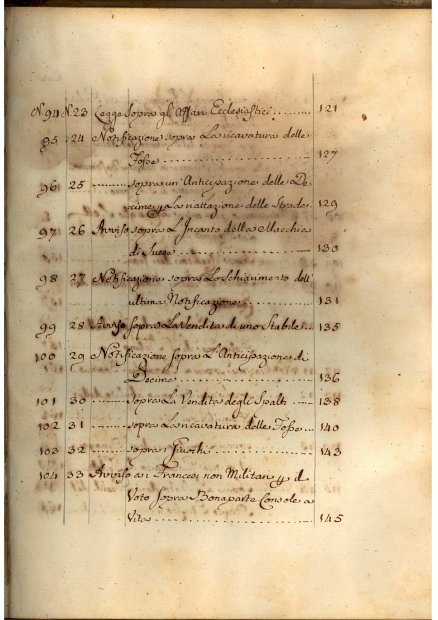 N.94 N.23 Legge Sopra gl'Affari Ecclesiastici ........ 121
95 .24 Notificazione sopra La ricavatura delle
Fosse ........ 127
96 25 ........ sopra un'Anticipazione delle De-
cime, e La riattazione delle Strade. 129
97 26 Avviso sopra L'Incanto della Macchia
di Suese ........ 130
98 27 Notificazione sopra Lo Schiarimento dell'
ultima Notificazione ........ 131
99 28 Avviso Sopra La Vendita di uno Stabile... 135
100 29 Notificazione sopra L'Anticipazione di
Decime ........ 136
101 30 ........ Sopra La Vendita degli Spalti ... 138
102 31 ........ sopra La ricavatura delle Fosse ... 140
103 32 ........ sopra i Giuochi ........ 143
104 33 Avviso a i Francesi non Militari p il
Voto Sopra Bonaparte Console a
Vita ........ 145